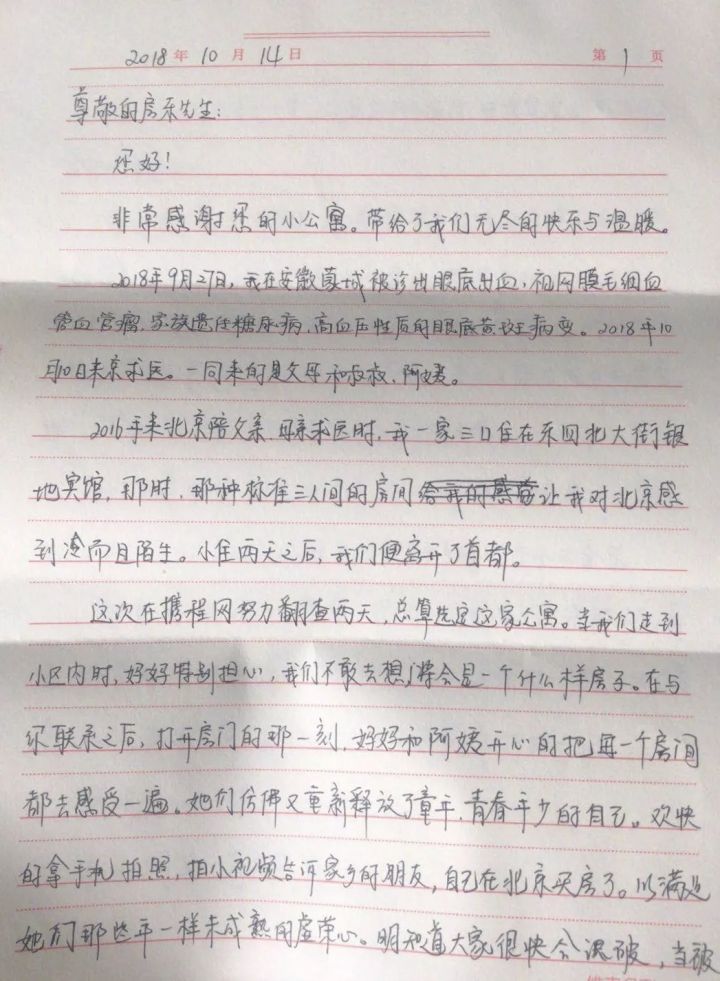 2018年10月14日 第1页
尊敬的房东先生:
您好!
非常感谢您的小公寓。带给了我们无尽的快乐与温暖。
2018年9月27日,我在安徽蒙城被诊出眼底出血,视网膜毛细血
管血管瘤,家族遗传糖尿病,高血压性质的眼底黄斑病变。2018年10
月10日来京求医。一同来的是父母和叔叔、阿姨。
2016年来北京陪父亲、母亲求医时,我一家三口住在东四北大街银
地宾馆,那时,那种标准三人间的房间给我的感觉让我对北京感
到冷而且陌生。小住两天之后,我们便离开了首都。
这次在携程网努力翻查两天,总算选定这家公寓。当我们走到
小区内时,妈妈特别担心,我们不敢去想,将会是一个什么样房子。在与
您联系之后,打开房门的那一刻,妈妈和阿姨开心的把每一个房间
都去感受一遍。她们仿佛又重新释放了童年,青春年少的自己。欢快
的拿手机拍照,拍小视频告诉家乡的朋友,自己在北京买房了。以满足
她们那些年一样未成熟的虚荣心。明知道大家很快会识破,当被